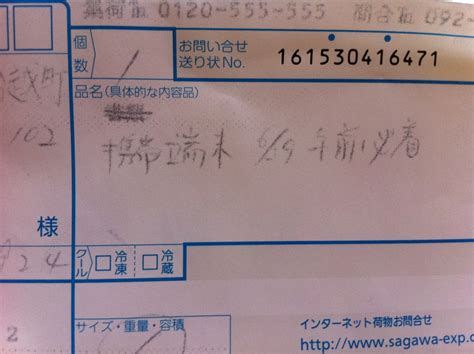 集荷 0120-555-555 問合 092
個数 1
お問い合せ送り状No. 161530416471
越町
102
品名(具体的な内容品)
携帯端末 6/19 午前必着
様
24
クール □冷凍 □冷蔵
2
サイズ・重量・容積
インターネット荷物お問合せ
http://www.sagawa-exp.c